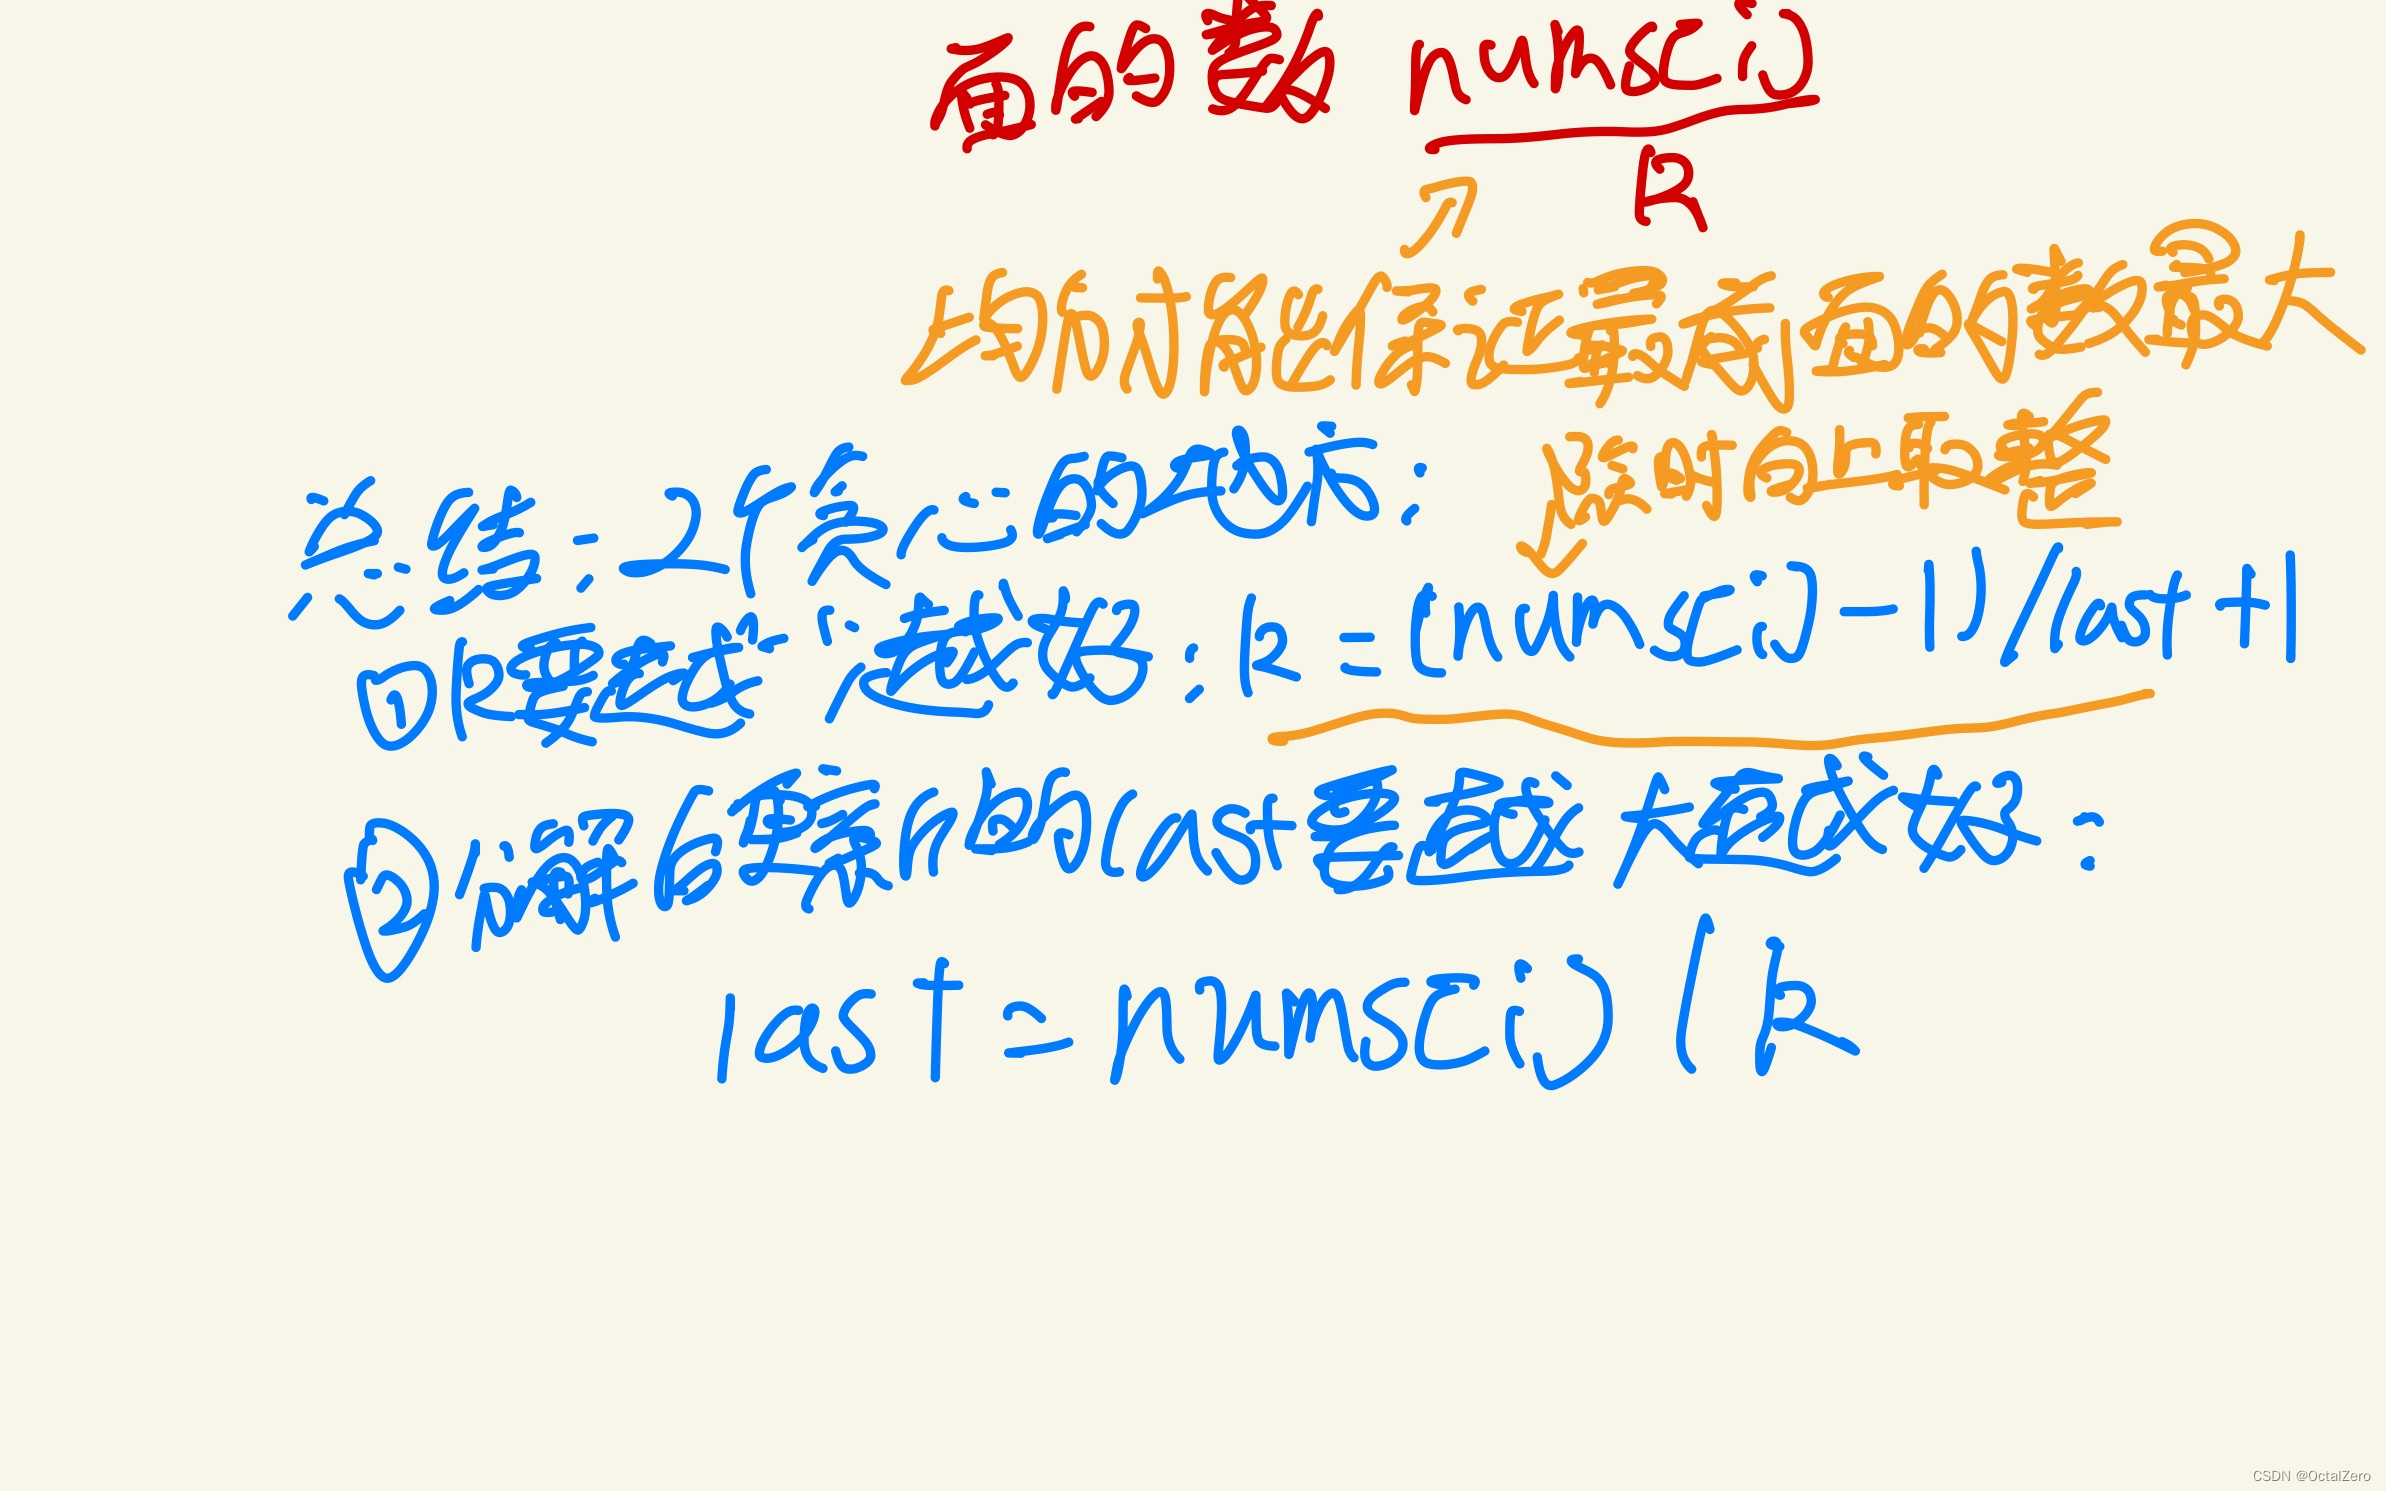 面的数 nums[i]
k
均分才能保证最最后面的数最大
这时向下取整
总结:2个贪心的地方:
①k要越小越好:k = (nums[i]-1)/last+1
②分解后要新的last要越大越好:
last = nums[i]/k
CSDN @OctalZero